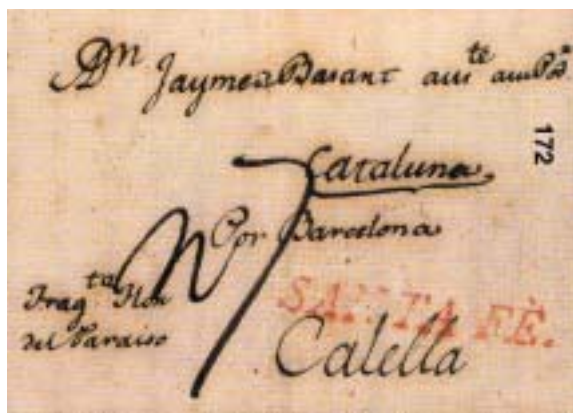 A Dn Jayme Basant auste
172
Cataluna
Por Barcelona
Fragta Flor
del Paraiso
SANTA FÈ.
Calella